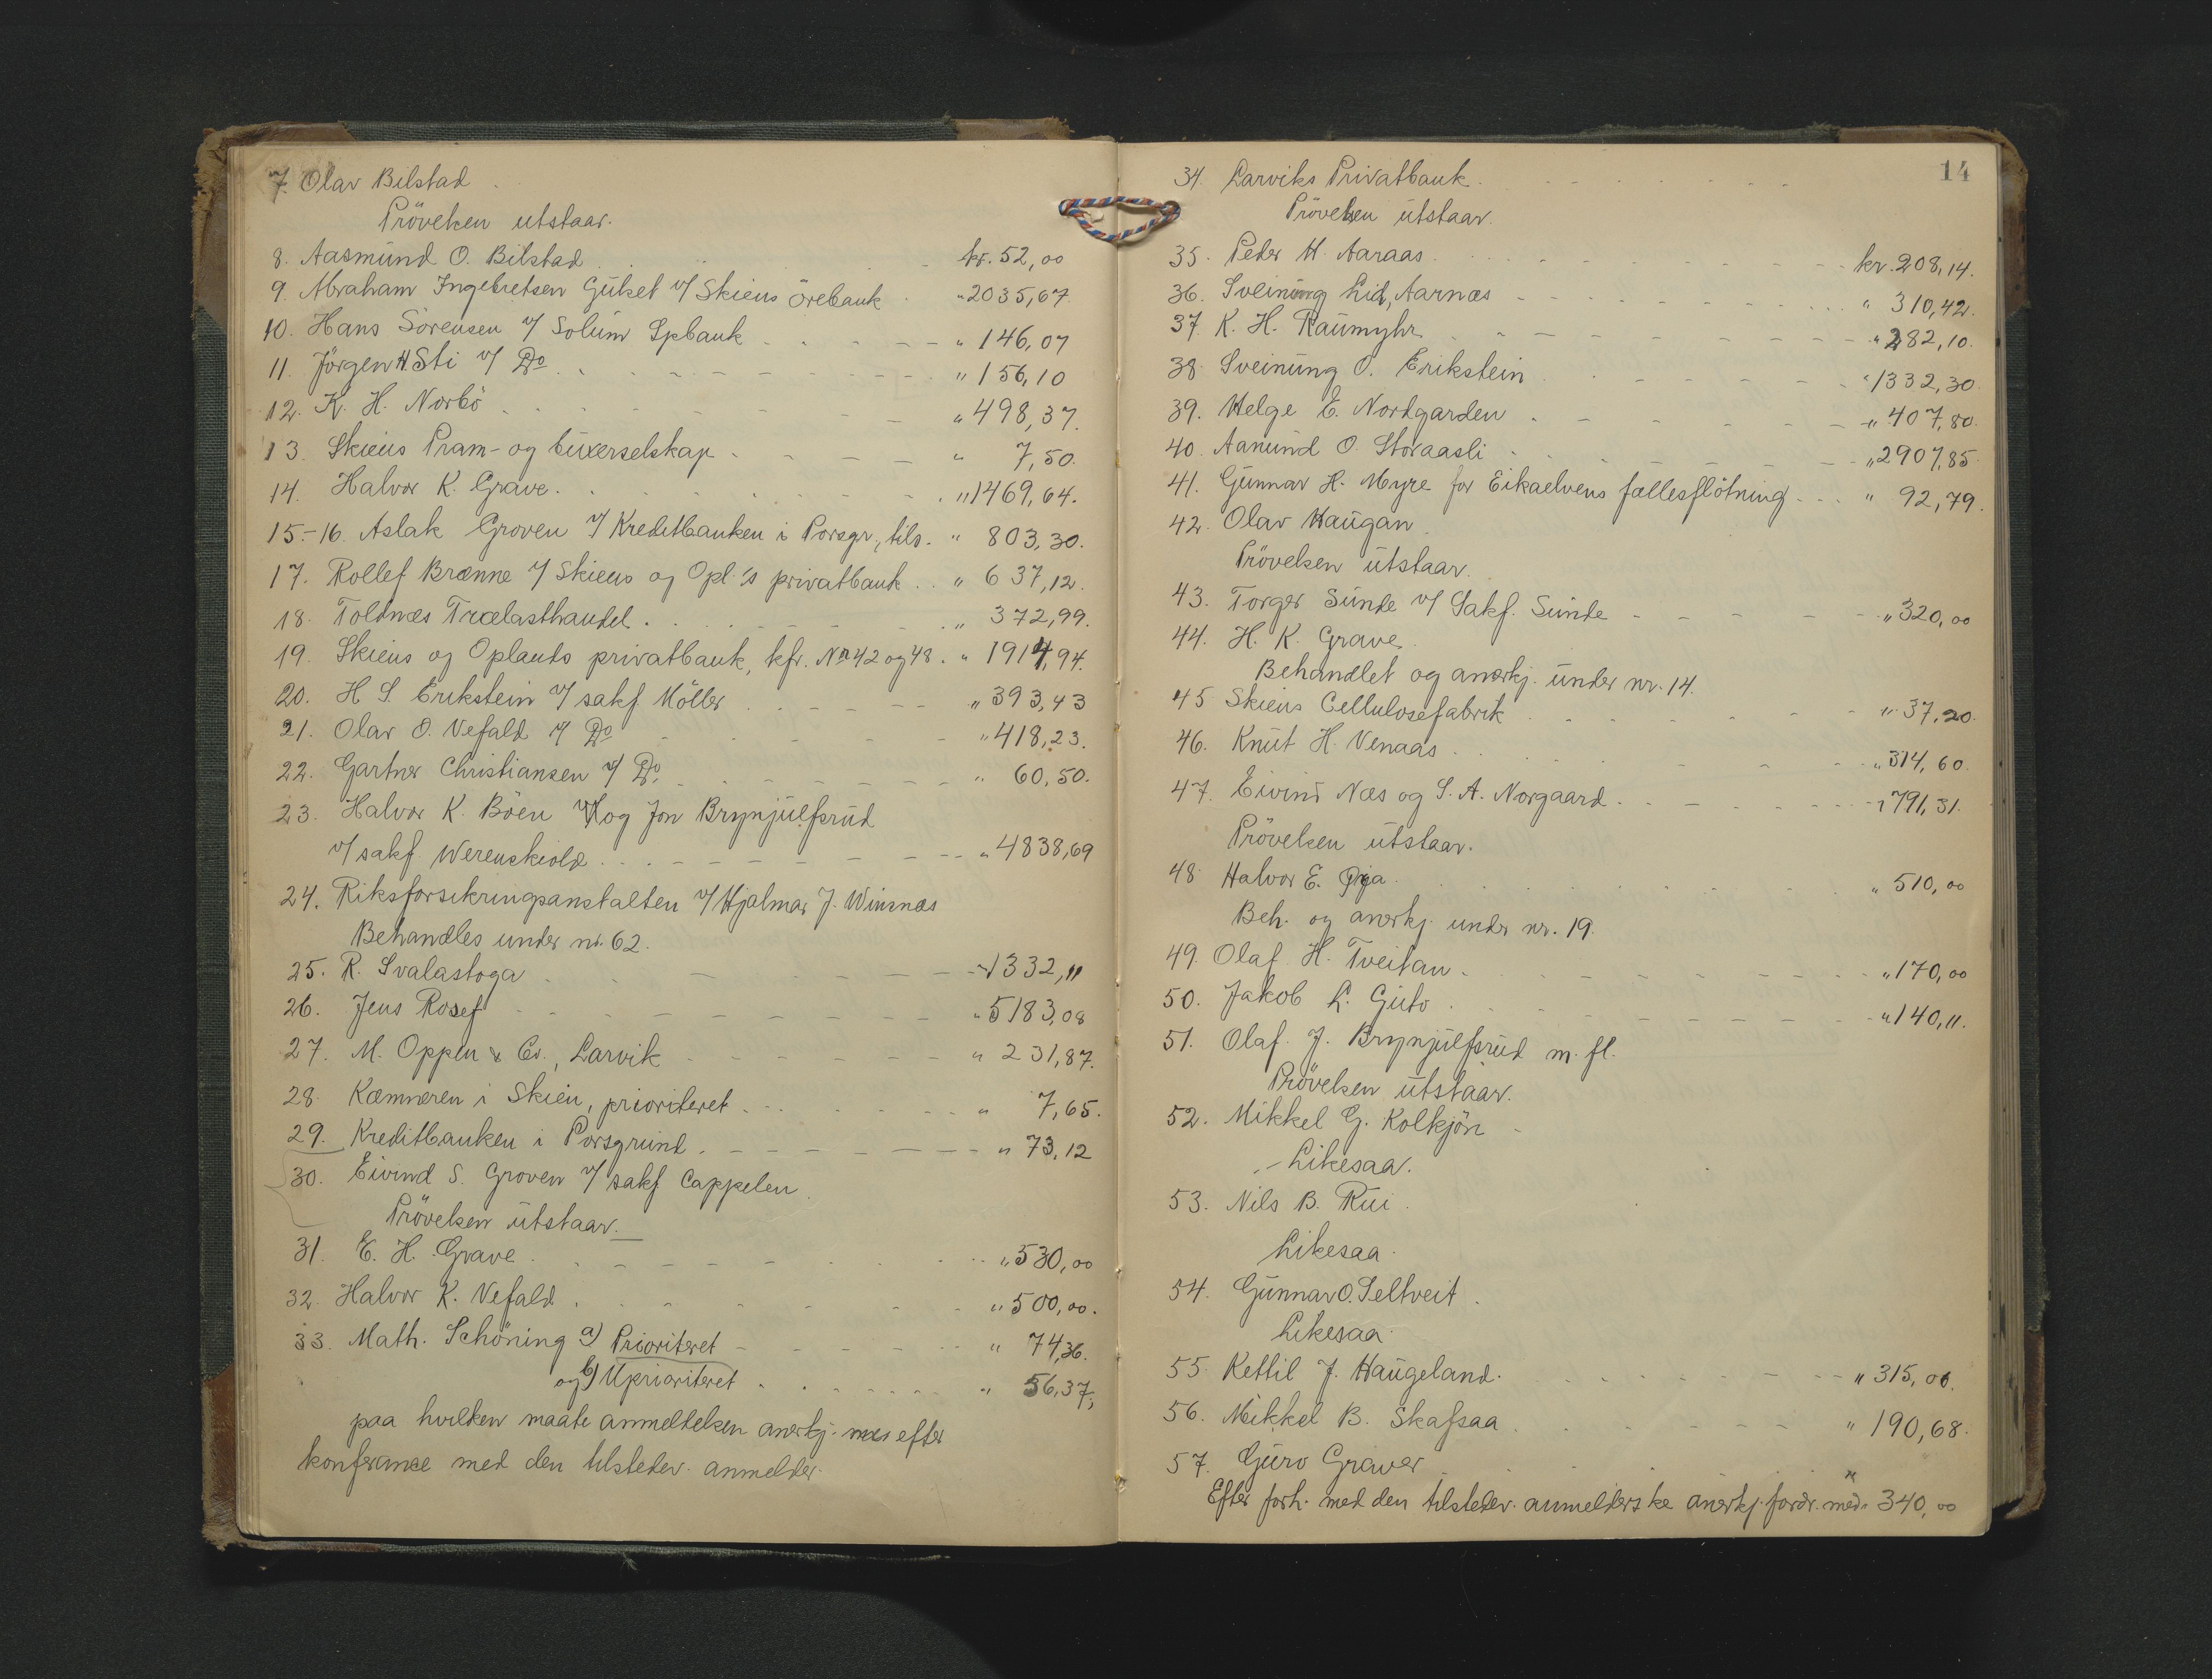 7. Olav Bilstad
Prövelsen utstaar.
8. Aasmund O. Bilstad kr. 52,00
9. Abraham Ingebretsen Gulset v/ Skiens Örebank " 2035,67
10. Hans Sörensen v/ Solum Spbank " 146,07
11. Jörgen H Sti v/ Do " 156,10
12. K. H. Norbö " 498,37.
13. Skiens Pram- og buxerselskap " 7,50.
14. Halvor K. Grave " 1469,64.
15.-16. Aslak Groven v/ Kreditbanken i Porsgr., tils. " 803,30.
17. Rollef Brænne v/ Skiens og Opl.'s privatbank " 637,12.
18. Toldnæs Trælasthandel " 372,99.
19. Skiens og Oplands privatbank, kfr. No 42 og 48. " 1914,94.
20. H. S. Erikstein v/ sakf. Möller " 393,43
21. Olav O. Vefald v/ Do " 418,23.
22. Gartner Christiansen v/ Do " 60,50.
23. Halvor K. Böen og Jon Brynjulfsrud
v/ sakf. Werenskiold " 4838,69
24. Riksforsikringsanstalten v/ Hjalmar J. Winsnæs
Behandles under nr. 62.
25. R. Svalastoga " 1332,11
26. Jens Rosef " 5183,08
27. M. Oppen & Co., Larvik " 231,87.
28. Kæmneren i Skien, prioriteret " 7,65.
29. Kreditbanken i Porsgrund " 73,12
30. Eivind S. Groven v/ sakf. Cappelen
Prövelsen utstaar.
31. E. H. Grave " 530,00
32. Halvor K. Vefald " 500,00.
33. Math. Schöning a) Prioriteret " 74,36.
og b) Uprioriteret " 56,37,
paa hvilken maate anmeldelsen anerkj. efter
konferance med den tilstedev. anmelder.
14
34. Larviks Privatbank
Prövelsen utstaar.
35. Peder H. Aaraas kr. 208,14.
36. Sveinung Lid, Aarnæs " 310,42.
37. K. H. Raumyhr " 282,10.
38. Sveinung O. Erikstein " 1332,30
39. Helge E. Nordgarden " 407,80.
40. Aanund O. Storaasli " 2907,85.
41. Gunnar H. Myre for Eikaelvens fællesflötning " 92,79.
42. Olav Haugan
Prövelsen utstaar.
43. Torger Sunde v/ Sakf. Sunde " 320,00
44. H. K. Grave
Behandlet og anerkj. under nr. 14.
45. Skiens Cellulosefabrik " 37,20.
46. Knut H. Venaas " 314,60.
47. Eivind Næs og S. A. Norgaard " 1791,31.
Prövelsen utstaar.
48. Halvor E. " 510,00
Beh. og anerkj. under nr. 19.
49. Olaf H. Tveitan " 170,00
50. Jakob L. Guto " 140,11.
51. Olaf J. Brynjulfsrud m. fl.
Prövelsen utstaar.
52. Mikkel G. Kolkjön
Likesaa.
53. Nils B. Rui
Likesaa.
54. Gunnar O. Seltveit
Likesaa.
55. Kettil J. Haugeland. " 315,00.
56. Mikkel B. Skafsaa " 190,68.
57. Guro Graver
Efter forh. med den tilstedev. anmelderske anerkj. fordr. med " 340,00